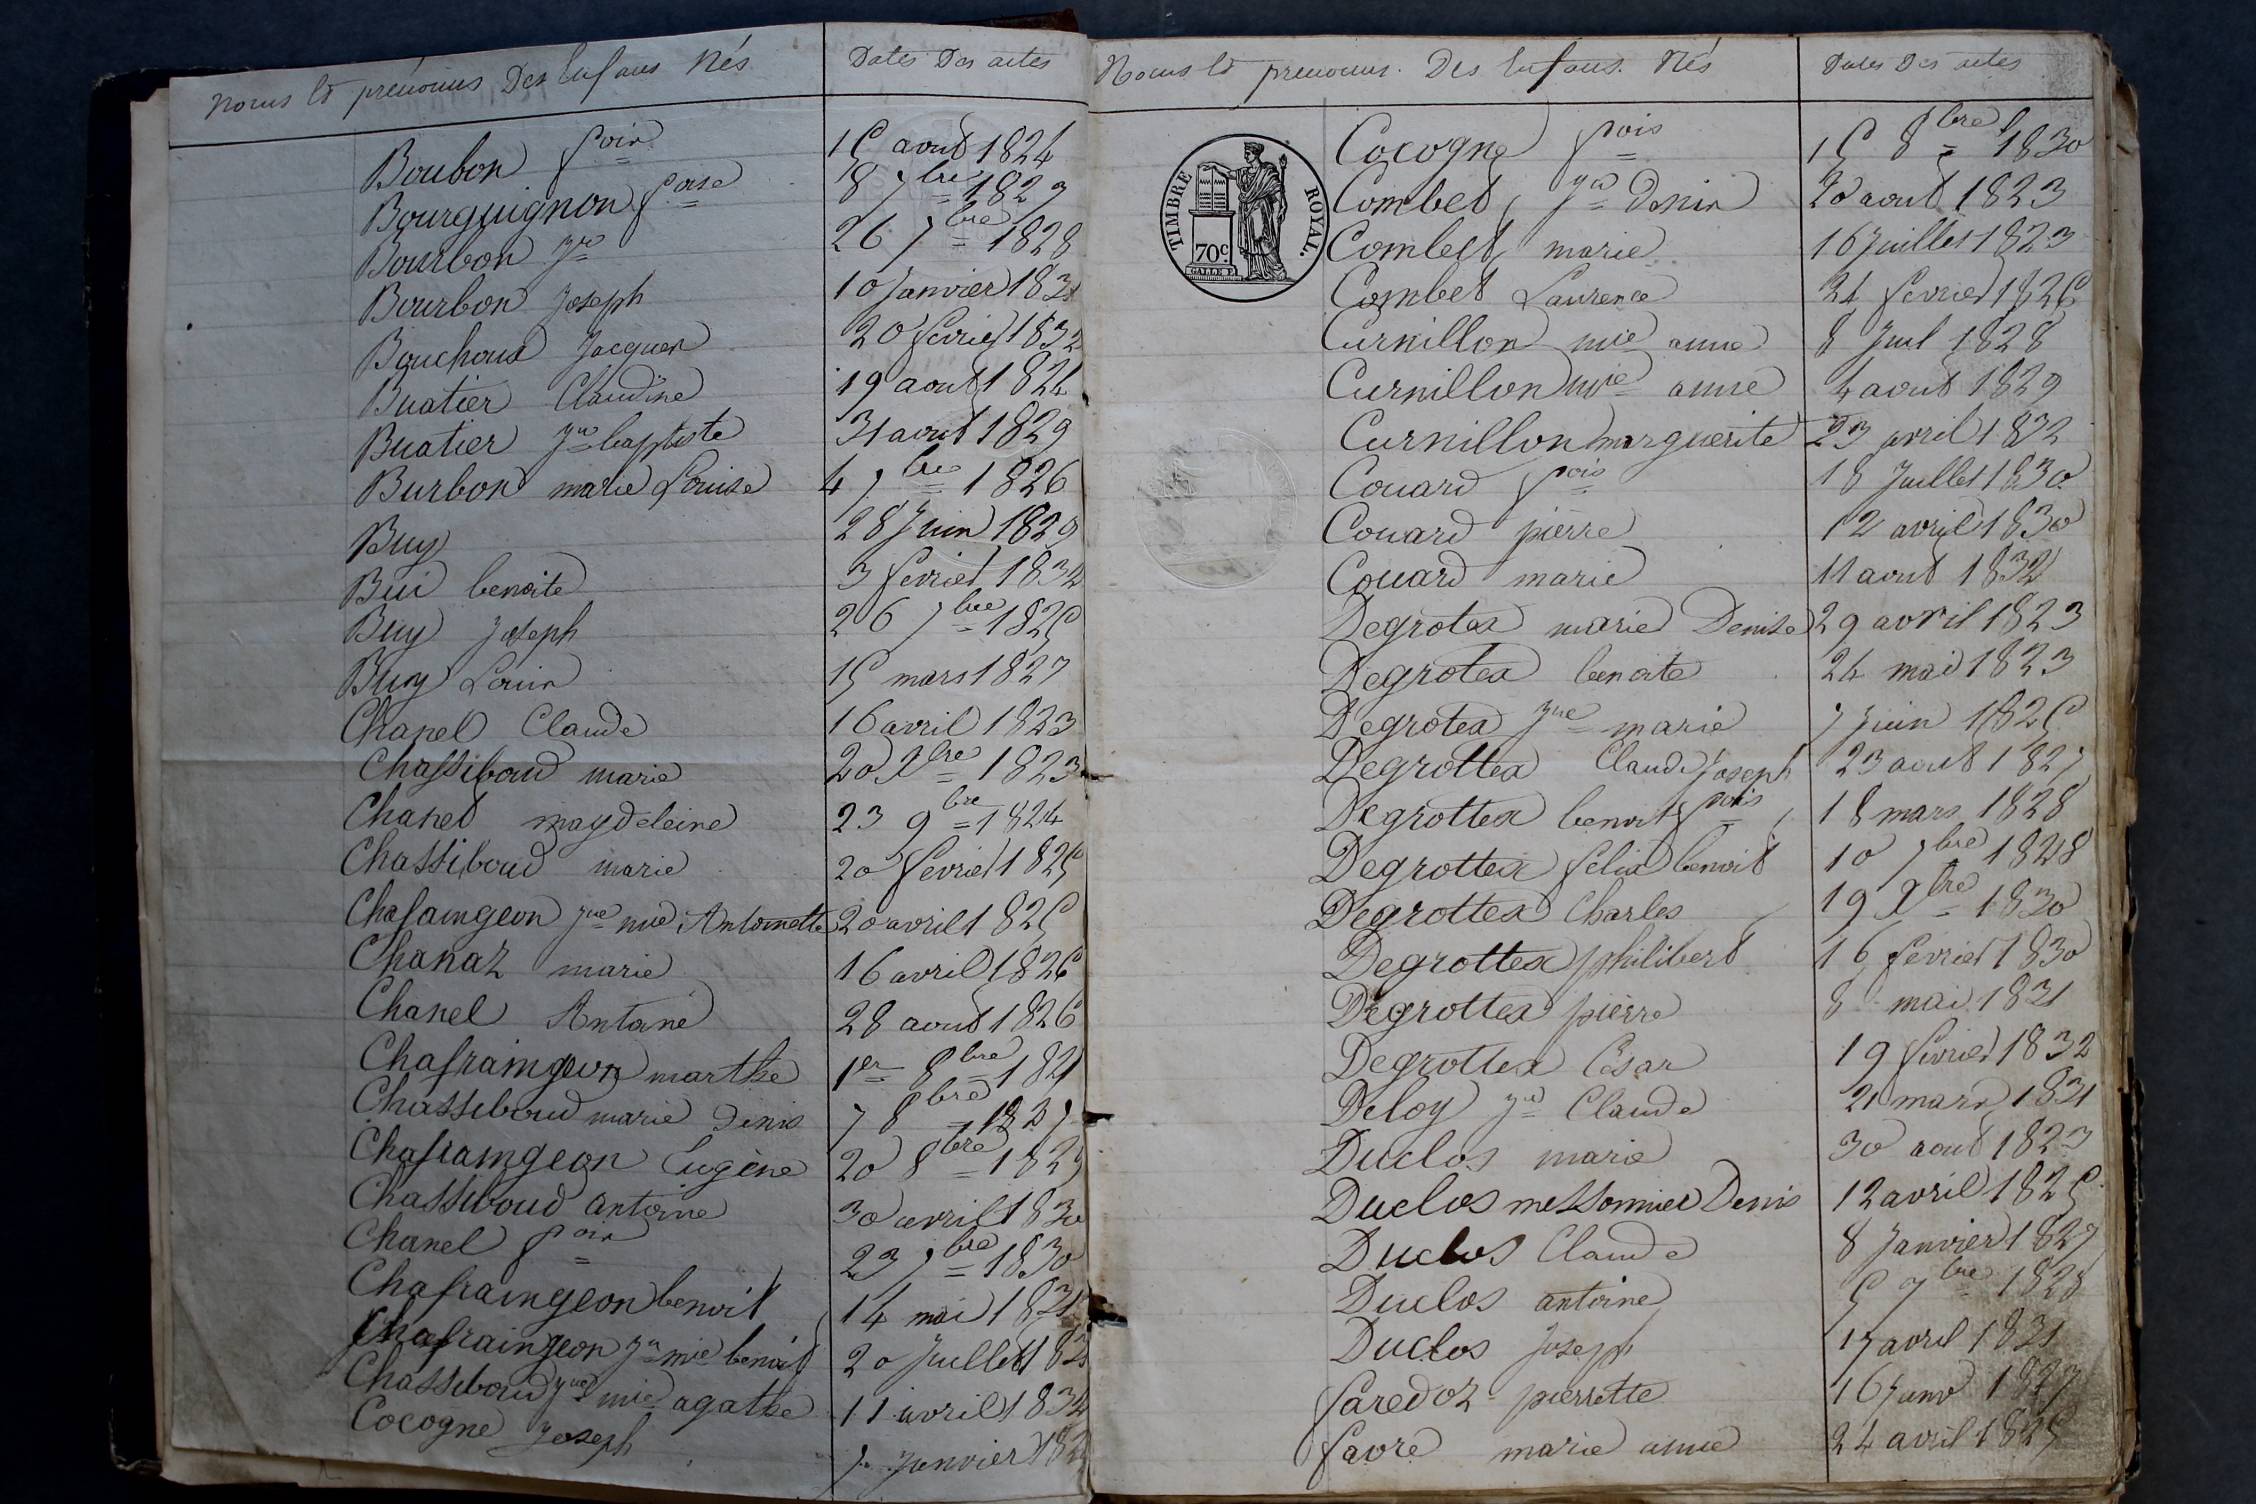 Noms et prénoms Des Enfans Nés Dates Des actes
Boubon fois 15 aout 1824
Bourguignon foise 18 7bre 1829
Bourbon Jn 26 7bre 1828
Bourbon Joseph 10 Janvier 1831
Bouchoux Jacques 20 fevrier 1832
Buatier Claudine 19 aout 1824
Buatier Jn baptiste 31 aout 1829
Burbon marie Louise 4 7bre 1826
Buy 28 Juin 1829
Bui benoite 3 fevrier 1832
Buy Joseph 26 7bre 1825
Buy Louis 15 mars 1827
Chanel Claude 16 avril 1823
Chassiboud marie 20 Xbre 1823
Chanel magdeleine 23 9bre 1824
Chassiboud marie 20 fevrier 1825
Chafaingeon Jne mie Antoinette 20 avril 1825
Chanaz marie 16 avril 1826
Chanel Antoine 28 aout 1826
Chafraingeon marthe 1er 8bre
Chassiboud marie Denis 7 8bre 1827
Chafraingeon Eugène 20 8bre
Chassiboud antoine 30 avril 1830
Chanel fois 23 7bre 1830
Chafraingeon benoit 14 mai 1831
Chafraingeon Jn mie benoit 20 Juillet
Chassiboud Jne mie agathe 11 avril 1832
Cocogne Joseph Janvier
Noms et prenoms. Des Enfans. Nés Dates Des actes
TIMBRE ROYAL.
70c.
Cocogne fois 15 8bre 1830
Combet Jn Denis 20 aout 1823
Combet marie 16 Juillet 1823
Combet Laurence 24 fevrier 1826
Curnillon mie anne 8 Juil 1828
Curnillon mie anne 4 aout 1829
Curnillon marguerite 23 avril 1832
Couard fois 18 Juillet 1830
Couard pierre 12 avril 1830
Couard marie 11 aout 1832
Degrotex marie Denise 29 avril 1823
Degrotex benoite 24 mai 1823
Degrotex Jne marie 7 juin 1825
Degrottex Claude Joseph 23 aout 1827
Degrottex benoit fois 18 mars 1828
Degrottex felix benoit 10 7bre 1828
Degrottex Charles 19 Xbre 1830
Degrottex philibert 16 fevrier 1830
Degrottex pierre 8 mai 1831
Degrottex César 19 fevrier 1832
Deloy Jn Claude 21 mars 1831
Duclos marie 30 aout 1823
Duclos messonnier Denis 12 avril 1825
Duclos Claude 8 Janvier 1827
Duclos antoine 5 7bre 1828
Duclos Joseph 17 avril 1831
faredoz pierrette 16 Janv 1823
favre marie anne 24 avril 1825